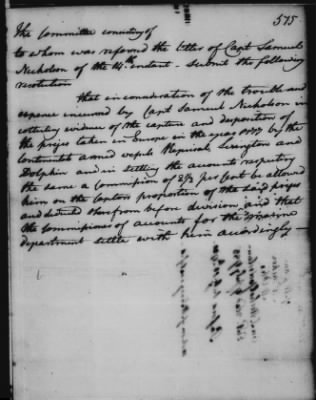 575
The Committee consisting of
to whom was referred the letter of Capt Samuel
Nicholson of the 14th instant - submit the following
resolution
That in consideration of the trouble and
expence incurred by Capt Samuel Nicholson in
collecting evidence of the capture and disposition of
the prizes taken in Europe in the year 1777 by the
Continental armed vessels Reprisal, Lexington and
Dolphin and in settling the accounts respecting
the same a commission of 2½ per Cent be allowed
him on the Captors proportion of the said prizes
and deducted therefrom before division, and that
the Commissioner of accounts for the marine
department settle with him accordingly —